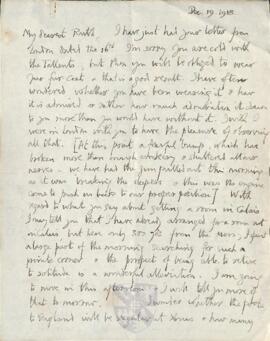 Dec 19 1915
My dearest Ruth, I have just had your letter from
London dated the 16th. I'm sorry you are cold with
the Tallents, but then you will be obliged to wear
your fur coat & that is a good result. I have often
wondered whether you have been wearing it & how
it is admired or rather how much admiration it draws
to you more than you would have without it. I wish I
were in London with you to have the pleasure of observing
all that. [At this point a fearful bump, which has
broken more than enough crockery & shattered
nerves - we have had the gun pulled out this morning
as it was breaking the & this was the engine
come to push us into our proper position] With
regard to what you say about getting a room in Calais
I may tell you that I have already arranged for a room not
in Calais but here only 350 yds from the mess. I spent
a large part of the morning searching for such a
private corner & the prospect of being able to retire
to solitude is a wonderful alleviation. I am going
to move in this afternoon & I will tell you more of
that to-morrow. I wonder whether the post
to England will be regular at Xmas & how many